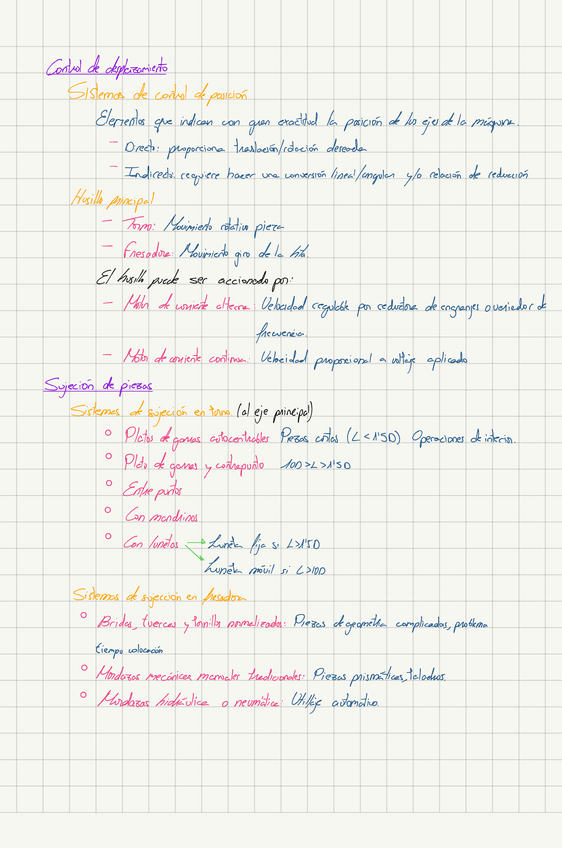 Control de desplazamiento
Sistemas de control de posición
Elementos que indican con gran exactitud la posición de los ejes de la máquina.
- Directo: proporciona traslación/rotación deseada
- Indirecto: requiere hacer una conversión lineal/angular y/o relación de reducción
Husillo principal
- Torno: Movimiento rotativo pieza
- Fresadora: Movimiento giro de la hta.
El husillo puede ser accionado por:
- Motor de corriente alterna: Velocidad regulable por reductora de engranajes o variador de
frecuencia.
- Motor de corriente continua: Velocidad proporcional a voltaje aplicado
Sujeción de piezas
Sistemas de sujeción en torno (al eje principal)
○ Platos de garras autocentrables Piezas cortas (L < 1'5D) Operaciones de interior.
○ Plato de garras y contrapunto 10D > L > 1'5D
○ Entre puntos
○ Con mandrinos
○ Con lunetas → Luneta fija si L > 1'5D
Luneta móvil si L > 10D
Sistemas de sujección en fresadora
○ Bridas, tuercas y tornillos normalizados: Piezas de geometría complicadas, problema
tiempo colocación
○ Mordazas mecánicas manuales tradicionales: Piezas prismáticas, taladros.
○ Mordazas hidráulica o neumática: Utillaje automático.